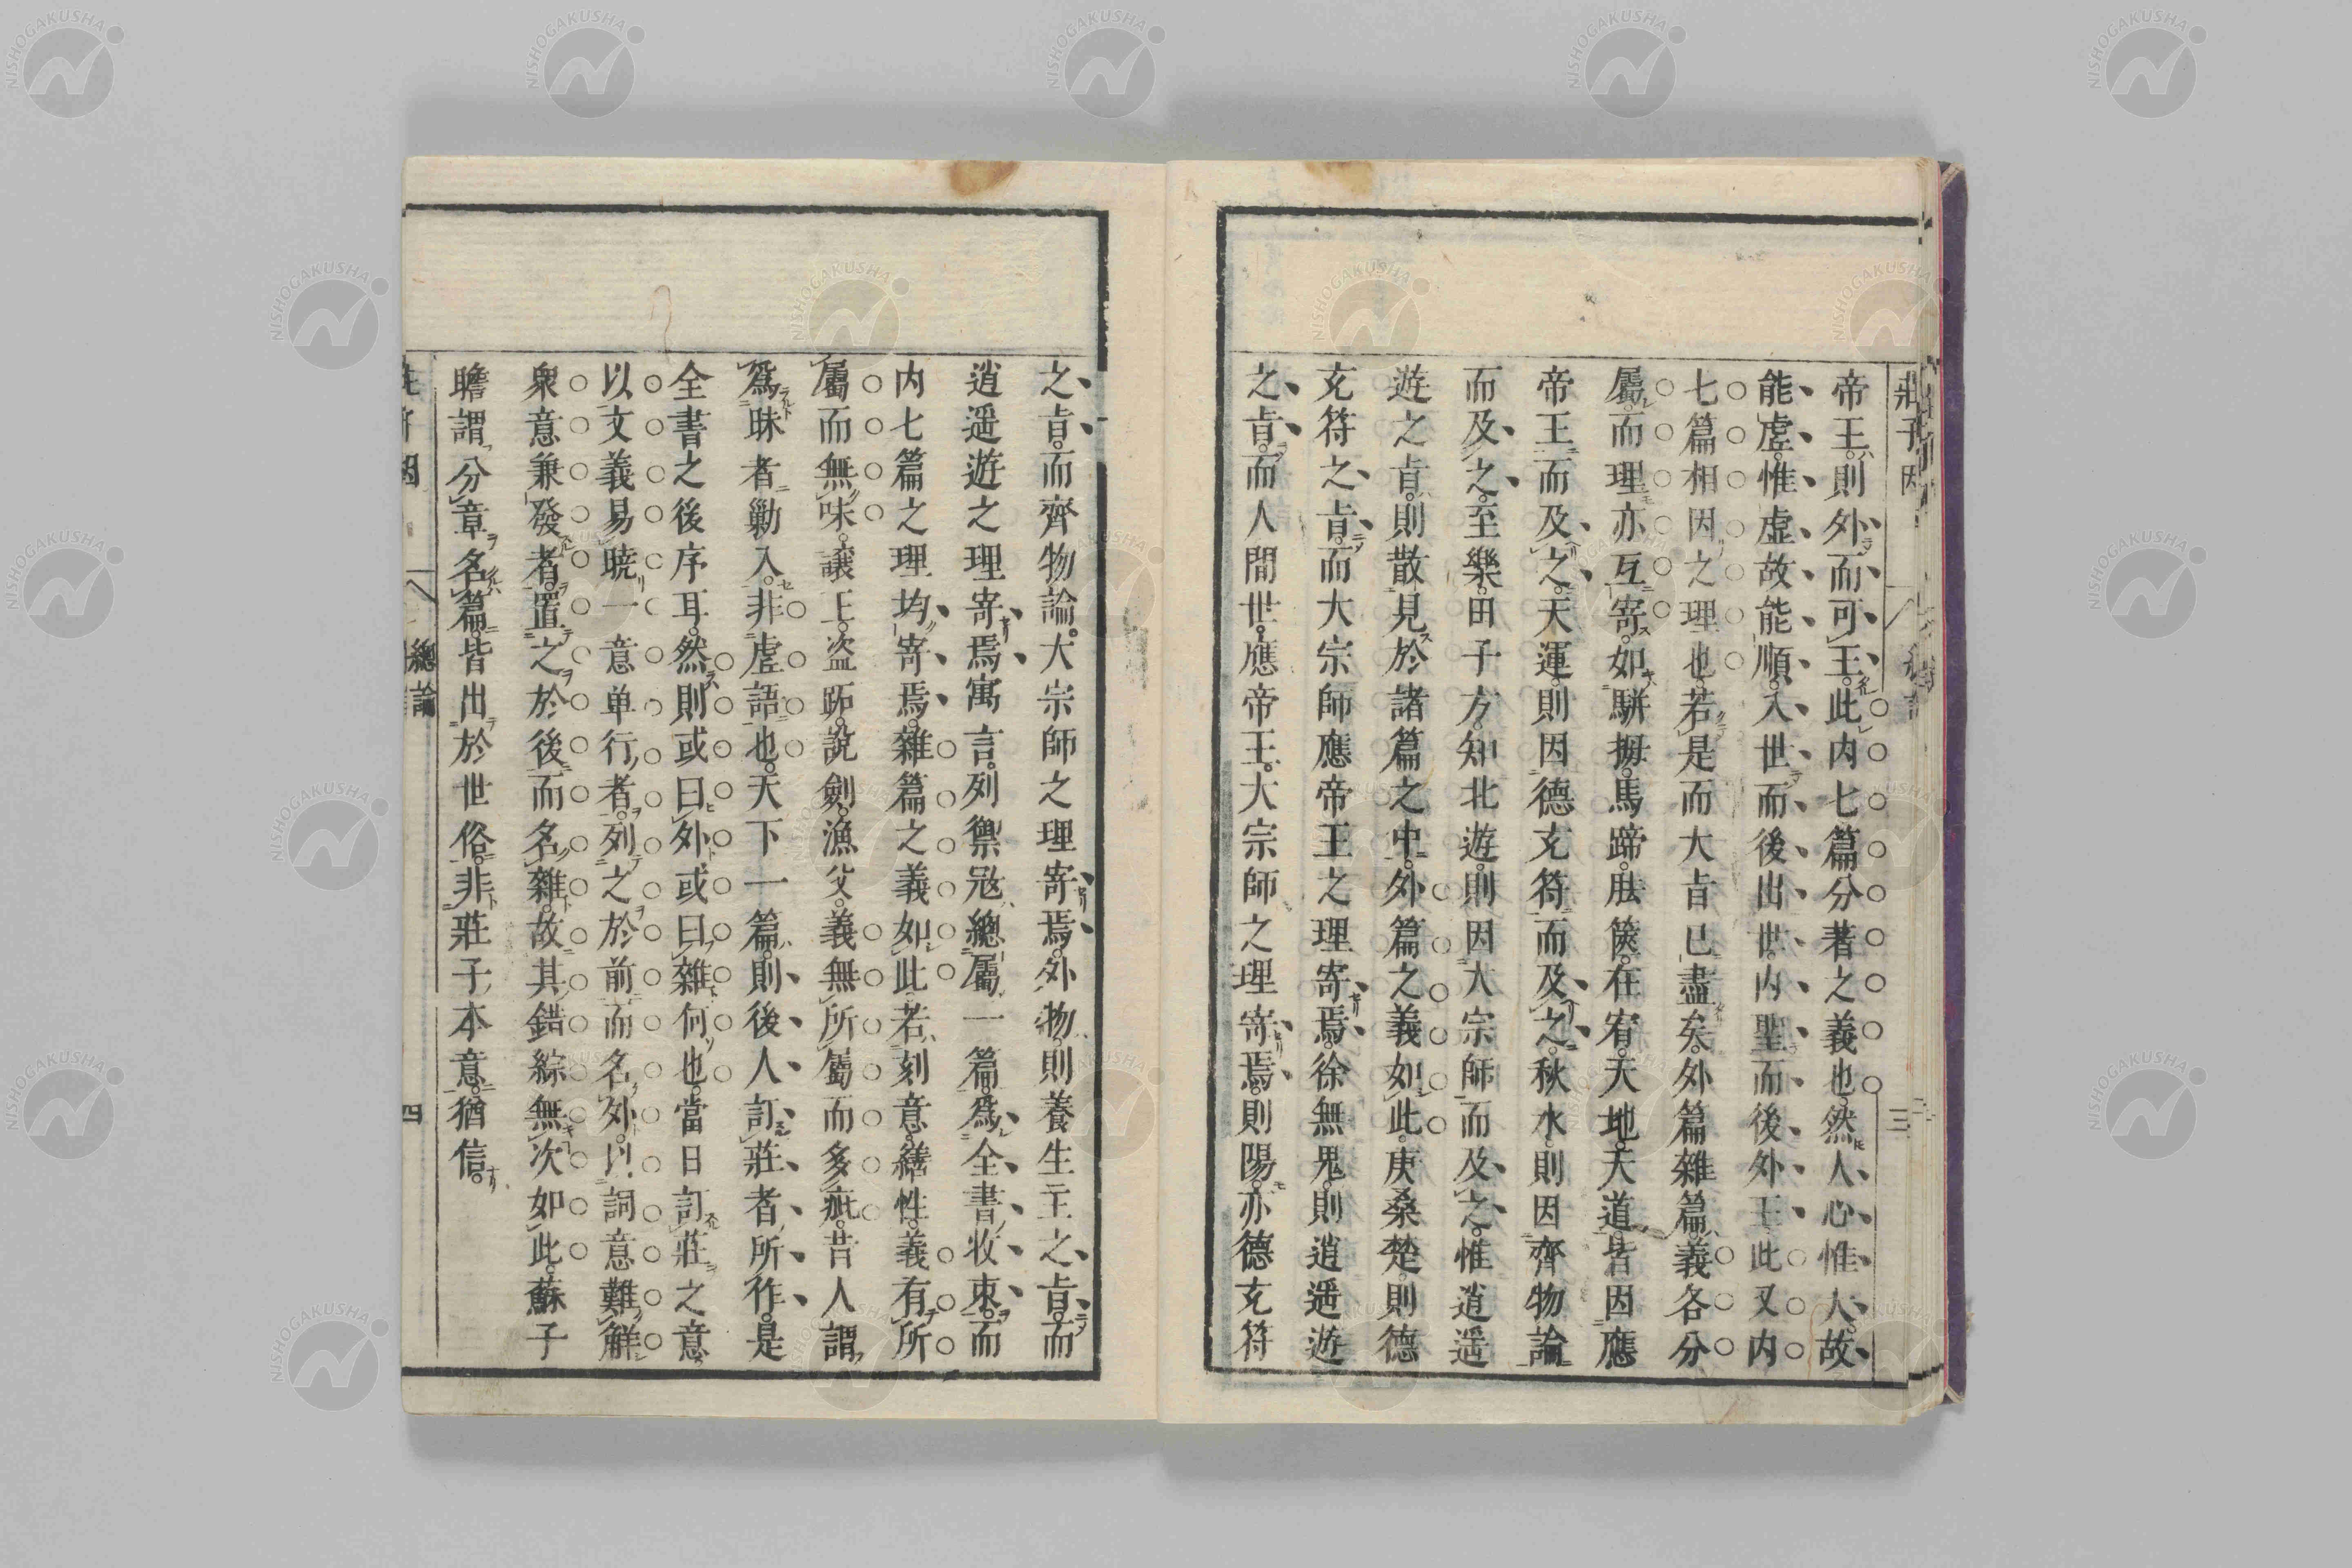 帝王。則外而可王。此内七篇分著之義也。然人心惟人。故
能虗。惟虚故能順。入世而後出世。内聖而後外王。此又内
七篇相因之理也。若是而大㫖已盡矣。外篇雜篇。義各分
屬。而理亦互寄。如駢拇。馬蹄。胠篋。在宥。天地。天道。皆因應
帝王而及之。天運。則因德充符而及之。秋水。則因齊物論
而及之。至樂。田子方。知北遊。則因大宗師而及之。惟逍遥
遊之㫖。則散見於諸篇之中。外篇之義如此。庚桑楚。則德
充符之㫖。而大宗師應帝王之理寄焉。徐無鬼。則逍遥遊
之㫖。而人間世。應帝王。大宗師之理寄焉。則陽。亦德充符
之㫖。而齊物論。大宗師之理寄焉。外物。則養生主之㫖。而
逍遥遊之理寄焉。寓言。列禦寇。總屬一篇。爲全書收束。而
内七篇之理均寄焉。雜篇之義如此。若刻意。繕性。義有所
屬而無味。讓王。盗跖。說劍。漁父。義無所屬而多疵。昔人謂
爲昧者勦入。非虗語也。天下一篇。則後人訂莊者所作。是
全書之後序耳。然則或曰外或曰雜何也。當日訂莊之意
以文義易曉一意单行者。列之於前而名外。以詞意難解
衆意兼發者。置之於後。而名雜。故其錯綜無次如此。蘇子
瞻謂分章名篇。皆出於世俗。非莊子本意。猶信。
總論
四
莊子因
三
NISHOGAKUSHA